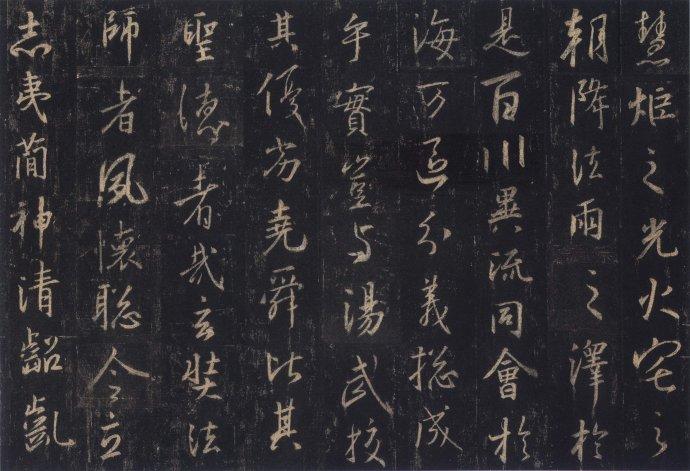 慧炬之光火宅之
朝降法雨之澤於
是百川異流同會於
海万區分義揔成
乎實豈与湯武挍
其優劣堯舜比其
聖德者哉玄奘法
師者夙懷聡令立
志夷蕳神清齠齓